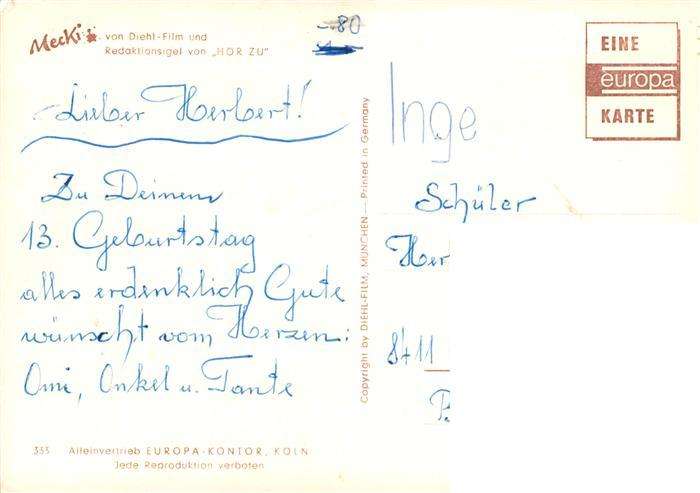 Mecki von Diehl-Film und
Redaktionsigel von „HÖR ZU"
-.80
EINE
europa
KARTE
Lieber Herbert!
Zu Deinem
13. Geburtstag
alles erdenklich Gute
wünscht vom Herzen:
Omi, Onkel u. Tante
Copyright by DIEHL-FILM, MÜNCHEN — Printed in Germany
Inge
Schüler
Her
8411
P.
355 Alleinvertrieb EUROPA-KONTOR, KÖLN
Jede Reproduktion verboten